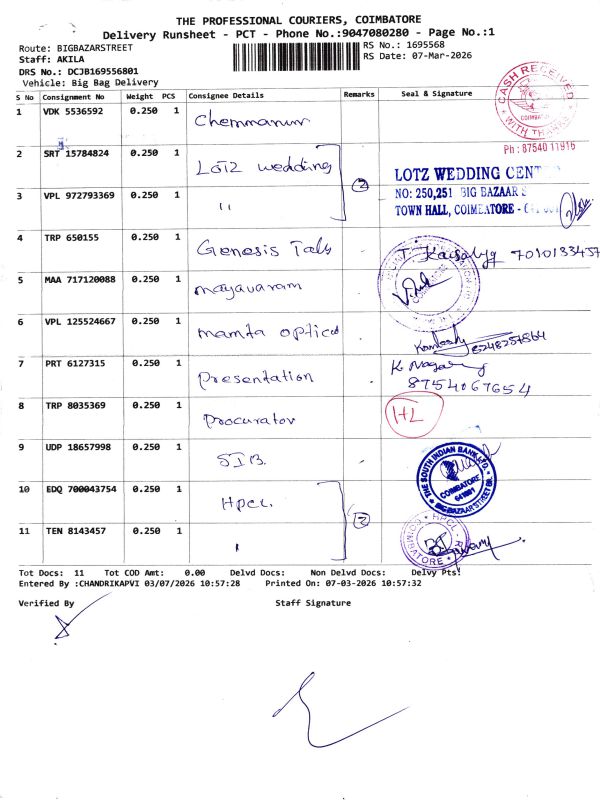 THE PROFESSIONAL COURIERS, COIMBATORE
Delivery Runsheet - PCT - Phone No.:9047080280 - Page No.:1
Route: BIGBAZARSTREET
RS No.: 1695568
Staff: AKILA
RS Date: 07-Mar-2026
DRS No.: DCJB169556801
Vehicle: Big Bag Delivery
S No Consignment No Weight PCS Consignee Details Remarks Seal & Signature
CASH RECEIVED
COIMBATORE
WITH THANKS
1 VDK 5536592 0.250 1 Chemmanur
Ph : 87540 11916
2 SRT 15784824 0.250 1 LOTZ wedding
(2)
LOTZ WEDDING CENT
NO: 250,251 BIG BAZAAR S
TOWN HALL, COIMBATORE -
3 VPL 972793369 0.250 1 "
4 TRP 650155 0.250 1 Genesis
7010133457
5 MAA 717120088 0.250 1 mayavaram
6 VPL 125524667 0.250 1 mamta optical
8248257864
7 PRT 6127315 0.250 1 Presentation
K
8754067654
8 TRP 8035369 0.250 1 Procurator
9 UDP 18657998 0.250 1 SIB.
THE SOUTH INDIAN BANK LTD.
COIMBATORE
641001
BIG BAZAAR STREET BR.
10 EDQ 700043754 0.250 1 HPCL
(2)
HPCL
COIMBATORE
11 TEN 8143457 0.250 1 "
Tot Docs: 11 Tot COD Amt: 0.00 Delvd Docs: Non Delvd Docs: Delvy Pts:
Entered By :CHANDRIKAPVI 03/07/2026 10:57:28 Printed On: 07-03-2026 10:57:32
Verified By Staff Signature